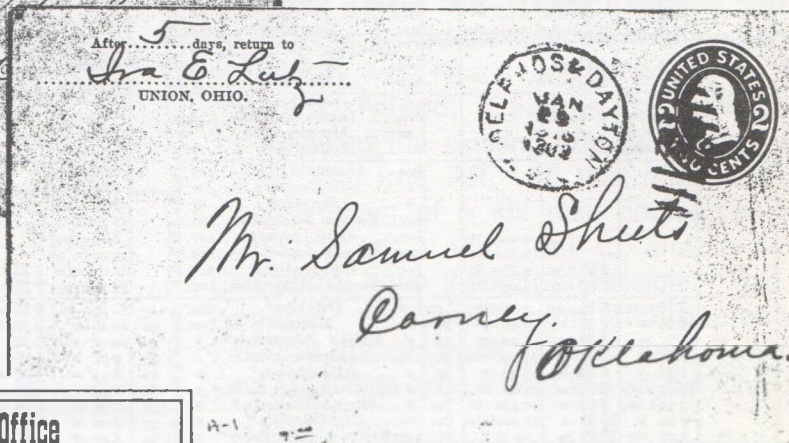 After 5 days, return to
Ira E Lutz
UNION, OHIO.
DELPHOS & DAYTON
JAN
UNITED STATES
2 2
TWO CENTS
Mr. Samuel Sheets
Carney,
Oklahoma.
Office
A-1